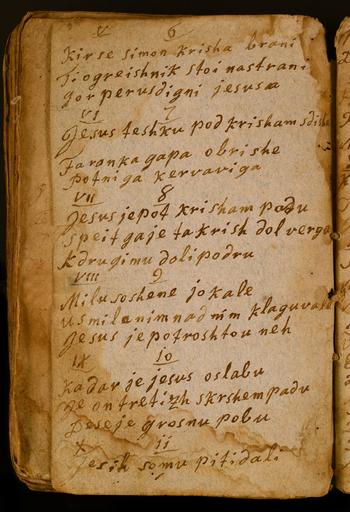 V 6
Kir se simon krisha brani
Ti ogreishnik stoi nastrani
gor perusdigni jesusa
VI 7
Jesus teshku pod krisham sdiha
Faranka gapa obrishe
potni ga kervaviga
VII 8
Jesus je pot krisham padu
Speit ga je ta krish dol verga
K drugimu doli podru
VIII 9
Milu so shene jokale
usmilenim nad nim klaguvale
Jesus je potroshtou neh
IX 10
Kadar je jesus oslabu
Je on tretizh s krshem padu
Deseje grosnu pobu
X 11
Jesih somu piti dali